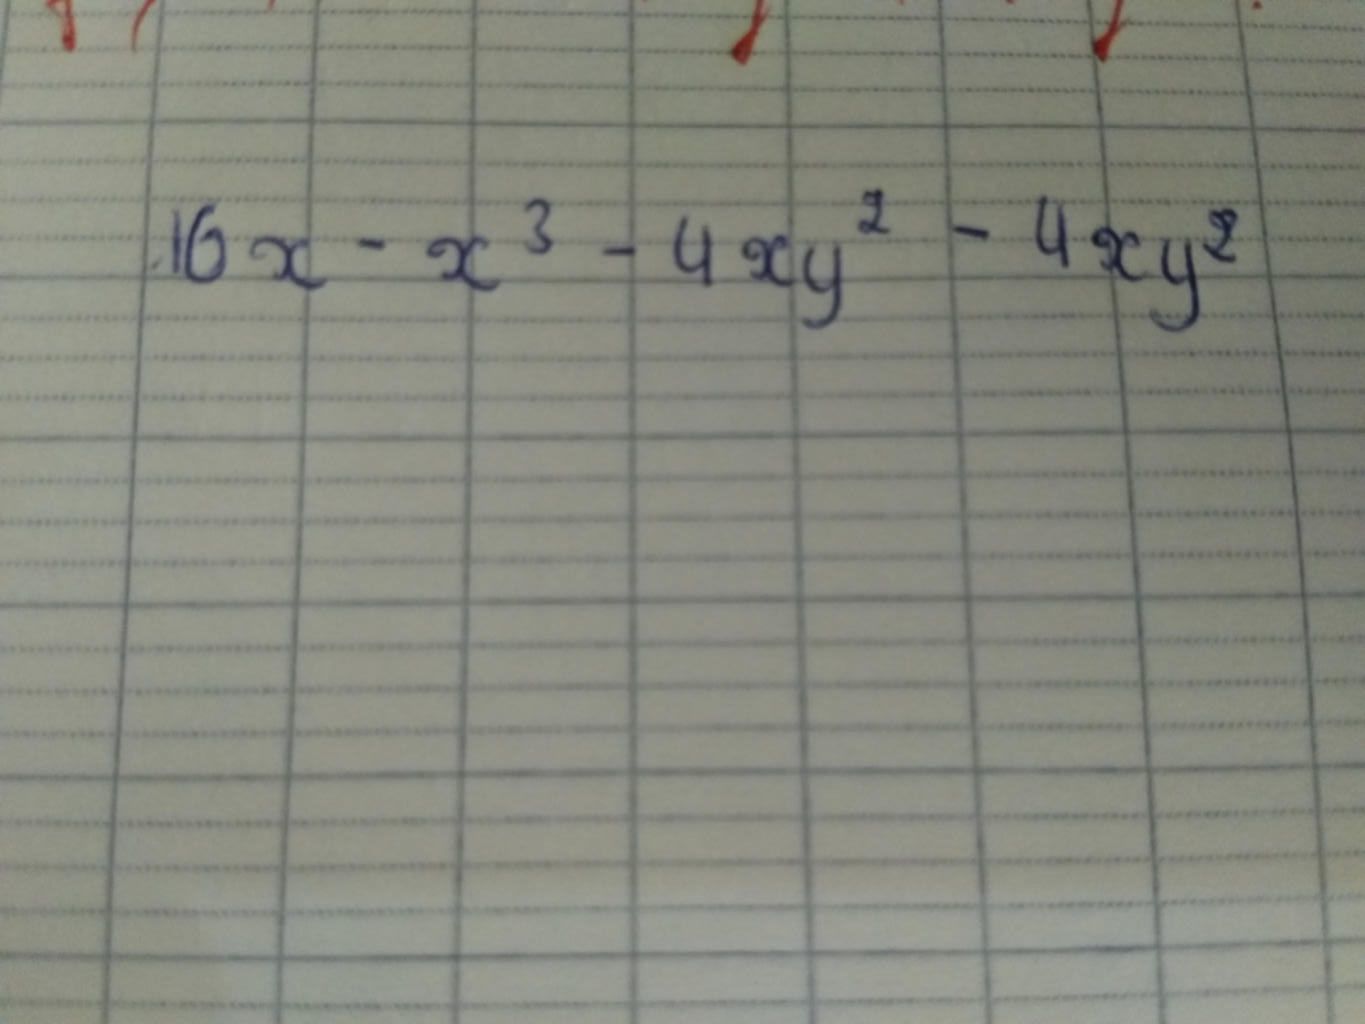 16x - x³ - 4xy² - 4xy²